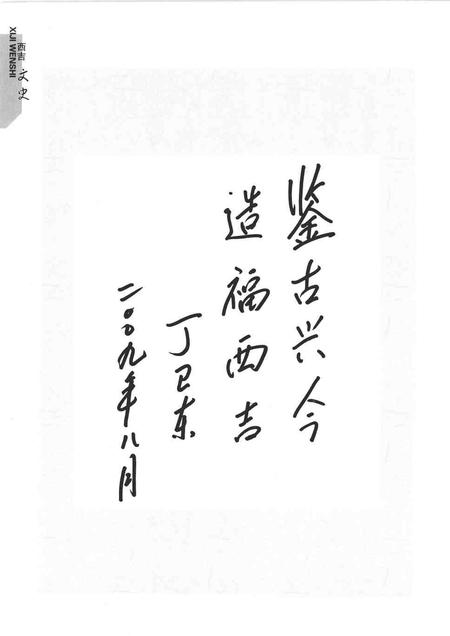 西吉文史
XIJI WENSHI
鉴古兴今
造福西吉
丁卫东
二〇〇九年八月